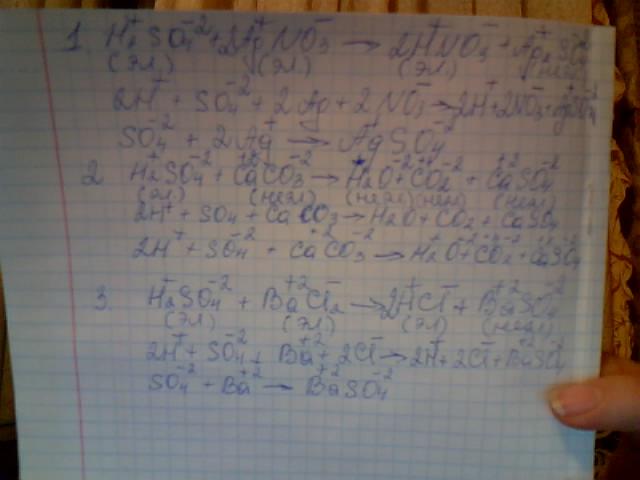 1 H₂⁺SO₄⁻² + 2Ag⁺NO₃⁻ → 2H⁺NO₃⁻ + Ag₂⁺SO₄⁻²
(эл) (эл) (эл) (неэл)
2H⁺ + SO₄⁻² + 2Ag⁺ + 2NO₃⁻ → 2H⁺ + 2NO₃⁻ +
SO₄⁻² + 2Ag⁺ → Ag⁺SO₄⁻²
2 H₂⁺SO₄⁻² + Ca⁺²CO₃⁻² → H₂⁺O⁻² + CO₂⁻² + Ca⁺²SO₄⁻²
(эл) (неэл) (неэл) (неэл) (неэл)
2H⁺ + SO₄ + CaCO₃ → H₂O + CO₂ + CaSO₄
2H⁺ + SO₄⁻² + Ca⁺²CO₃⁻² → H₂⁺O⁻² + CO₂⁻² + CaSO₄
3. H₂⁺SO₄⁻² + Ba⁺²Cl₂⁻ → 2H⁺Cl⁻ + Ba⁺²SO₄⁻²
(эл) (эл) (эл) (неэл)
2H⁺ + SO₄⁻² + Ba⁺² + 2Cl⁻ → 2H⁺ + 2Cl⁻ + Ba⁺²SO₄⁻²
SO₄⁻² + Ba⁺² → Ba⁺²SO₄⁻²